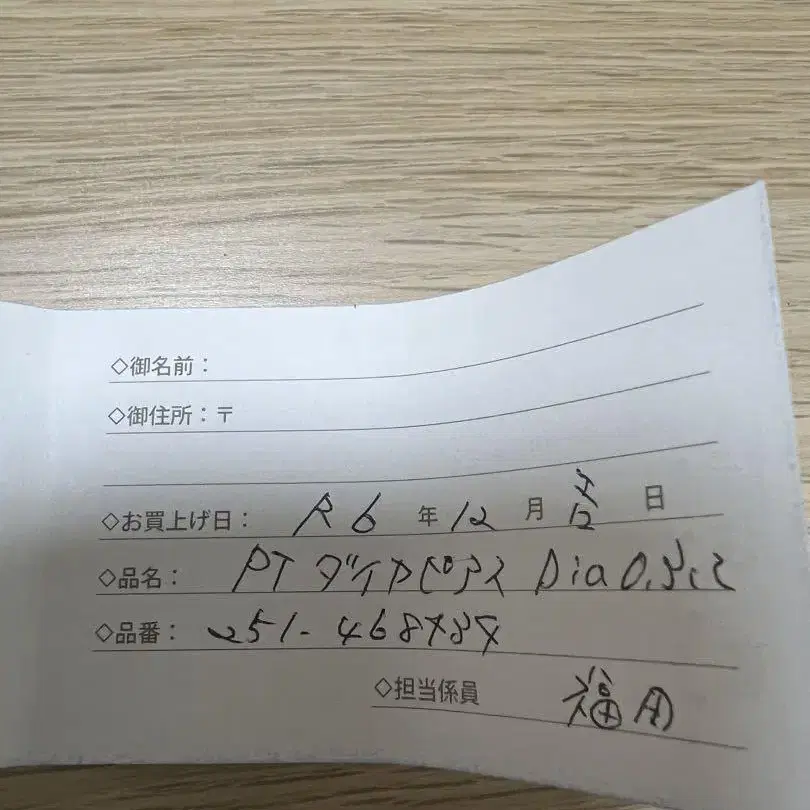 ◇御名前：
◇御住所：〒
◇お買上げ日： R6 年 12 月 吉 日
◇品名： PT ダイヤピアス Dia 0.3ct
◇品番： 251-468784
◇担当係員 福田